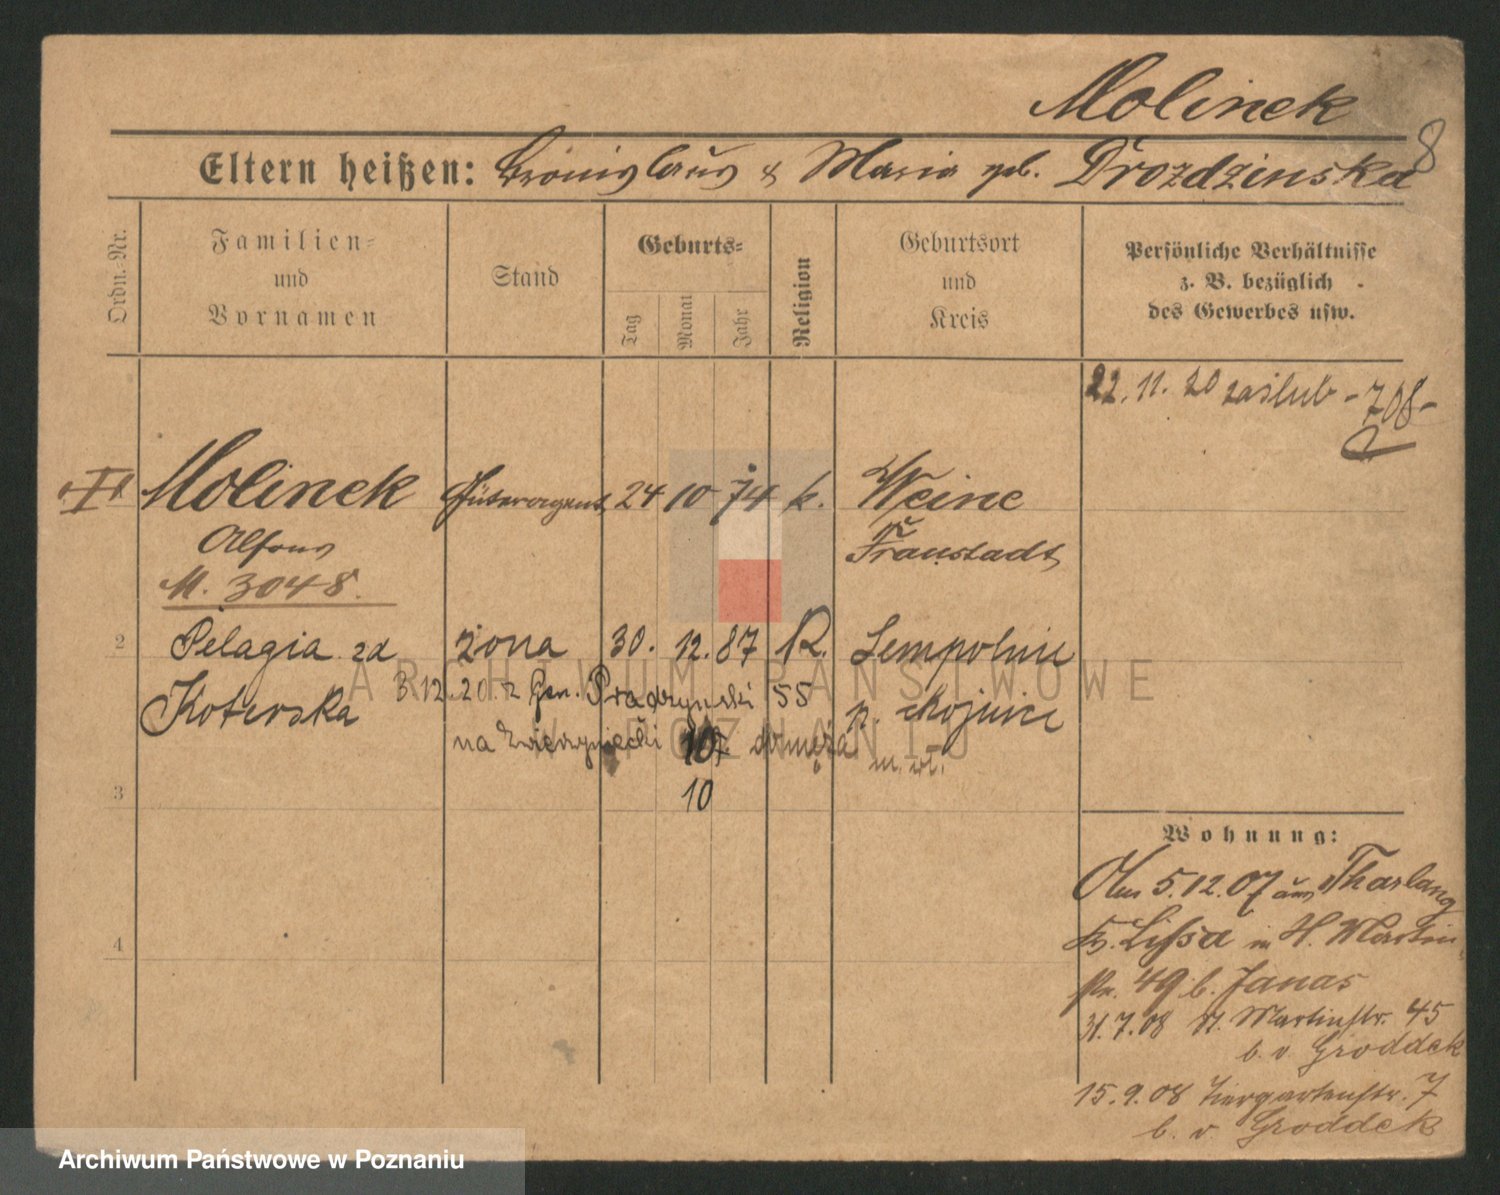 Molinek
8
Eltern heißen: Bronislaus & Maria geb. Drozdzinska
Ordn.-Nr.
Familien-
und
Vornamen
Stand
Geburts-
Tag
Monat
Jahr
Religion
Geburtsort
und
Kreis
Persönliche Verhältnisse
z. B. bezüglich
des Gewerbes usw.
22. 11. 20 zaślub - 708 -
Molinek Güteragent 24 10 74 k. Weine
Alfons
Fraustadt
M. 3048.
2 Pelagia zd żona 30. 12. 87 R.
Koterska
3 12. 20. z Gen. Prądzyński 55
na Zwierzyniecki 10 do męża
m. wł.
3
10
4
Wohnung:
Am 5.12.07 aus Tharlang
Kr. Lissa in St. Martin
str. 49 b. Janas
31.7.08 St. Martinstr. 45
b. v. Groddek
15.9.08 Tiergartenstr. 7
b. v. Groddek
ARCHIWUM PAŃSTWOWE
W POZNANIU
Archiwum Państwowe w Poznaniu